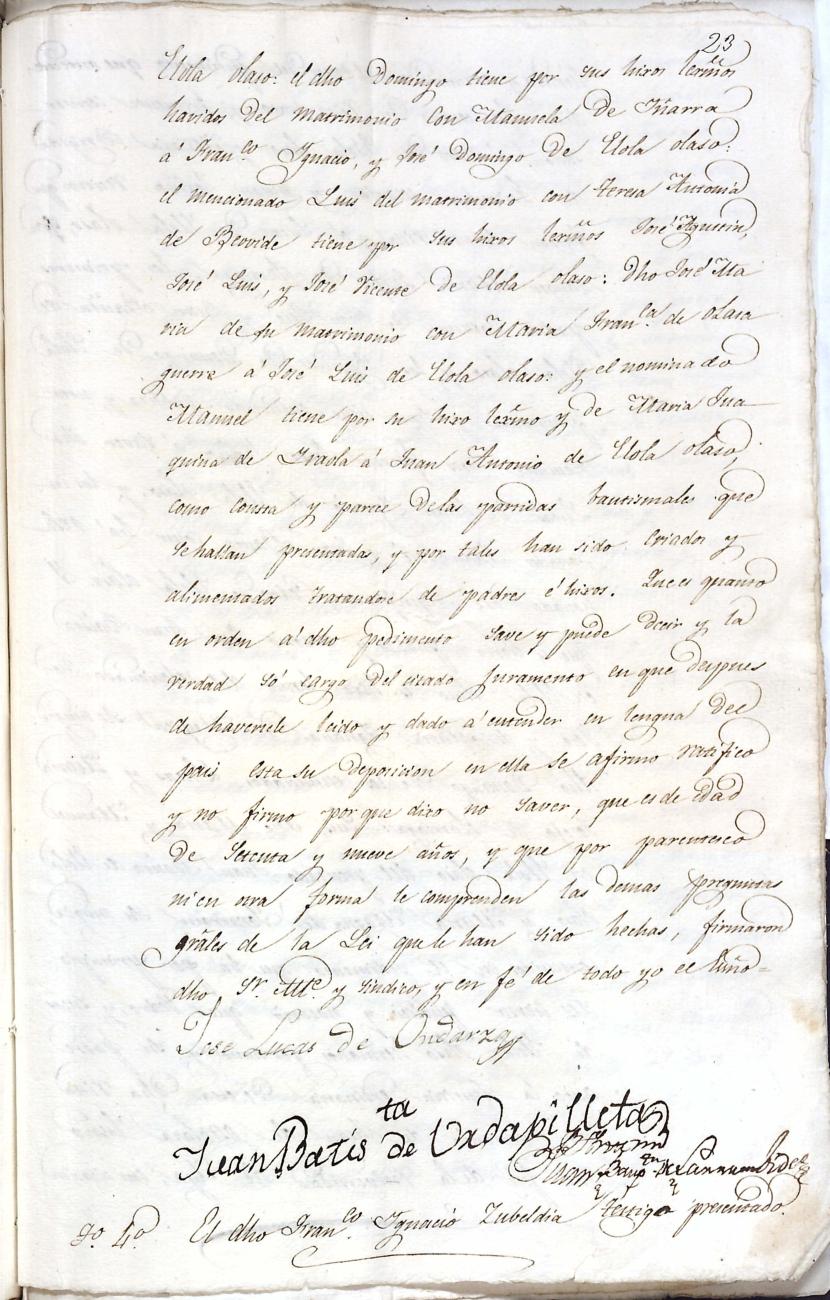 23
Elola olaso: el dho Domingo tiene por sus hixos lexmos
havidos del matrimonio con Manuela de Iñarra
á Franco Ignacio, y José Domingo de Elola olaso:
el mencionado Luis del matrimonio con Teresa Antonia
de Beovide tiene por sus hixos lexmos José Agustin,
José Luis, y José Vicente de Elola olaso: dho José Ma
ria de su matrimonio con Maria Franca de olasa
guerre á José Luis de Elola olaso: y el nominado
Manuel tiene por su hixo lexmo y de Maria Jua
quina de Iraola á Juan Antonio de Elola olaso,
como consta y parece delas partidas bautismales que
se hallan presentadas, y por tales han sido criados y
alimentados tratandose de padres é hixos. Que es quanto
en orden á dho pedimento save y puede decir y la
verdad só cargo del citado Juramento en que despues
de haversele leido y dado á entender en lengua del
pais esta su deposicion en ella se afirmo ratifico
y no firmo por que dixo no saver, que es de edad
de setenta y nueve años, y que por parentesco
ni en otra forma le comprenden las demas preguntas
grales de la Lei que le han sido hechas, firmaron
dho Sr. Alle. y sindico, y en fé de todo yo el Esño=
Jose Lucas de Ondarza
Juan Batista de Urdapilleta
Juan Baup. de Larrumbide
go. 4o El dho Franco Ignacio Zubeldia testigo presentado.